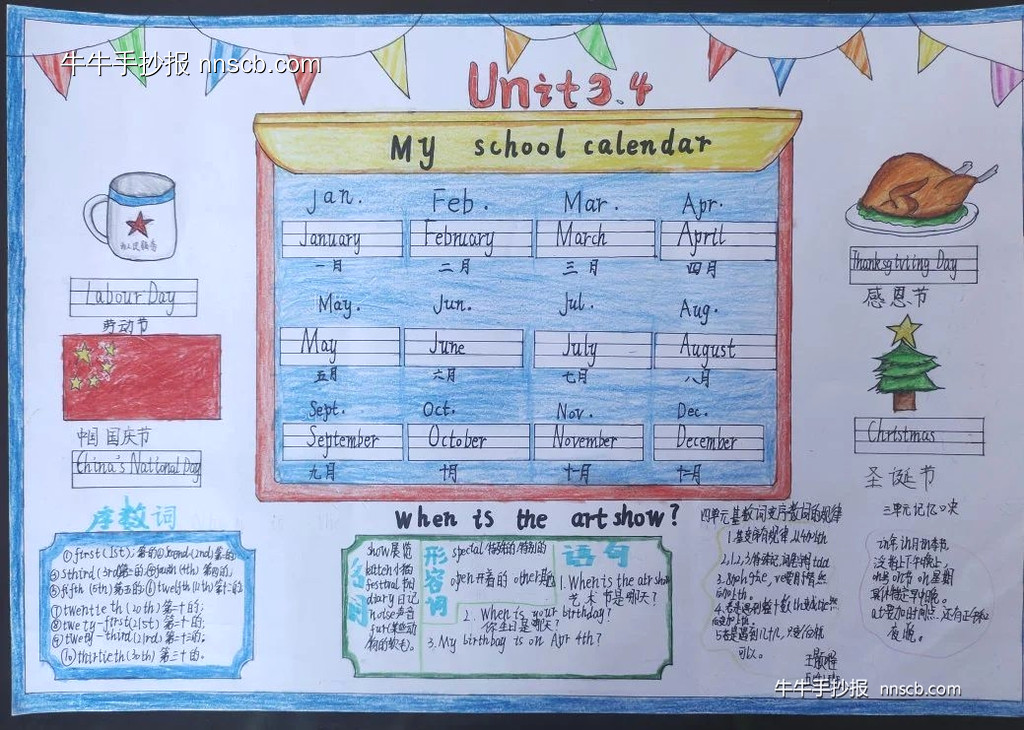 牛牛手抄报 nnscb.com
Unit3.4
My school calendar
Jan. Feb. Mar. Apr.
January February March April
一月 二月 三月 四月
May. Jun. Jul. Aug.
May June July August
五月 六月 七月 八月
Sept. Oct. Nov. Dec.
September October November December
九月 十月 十一月 十二月
Labour Day
劳动节
中国 国庆节
China's National Day
Thanksgiving Day
感恩节
Christmas
圣诞节
序数词
①first(1st):第一的②second(2nd)第二的
③third(3rd)第三的
⑤fifth(5th)第五的 ⑥twelfth(12th)第十二的
⑦twentieth(20th)第二十的;
⑧twety-first(21st)
⑨twety-third(23rd)第二十三的;
⑩thirtieth(30th)第三十的.
When is the art show?
名词
show展览
kitten小猫
festival节日
diary日记
noise声音
fur(某些动
物的)软毛.
形容词
special 特殊的,特别的
open开着的 other其他
语句
1.When is the art show
艺术节是哪天?
2. When is your birthday?
你生日是哪天?
3.My birthday is on Apr 4th?
四单元基数词变序数词的规律
1.基变序有规律,从4加th
可以。
三单元记忆口诀
牛牛手抄报 nnscb.com